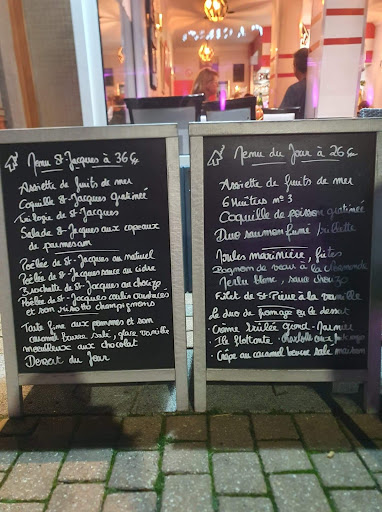 Menu St-Jacques à 36€
Assiette de fruits de mer
Coquille St-Jacques Gratinée
Trilogie de St-Jacques
Salade St-Jacques aux copeaux
de parmesan
Poêlée de St-Jacques au naturel
Poêlée de St-Jacques sauce au cidre
Brochette de St-Jacques au chorizo
Poêlée de St-Jacques
et son risotto champignons
Tarte fine aux pommes et son
caramel beurre salé, glace vanille
moelleux aux chocolat
Dessert du Jour
Menu du Jour à 26€
Assiette de fruits de mer
6 Huîtres n°3
Coquille de poisson gratinée
Duo saumon fumé /
Moules marinière, frites
Rognon de veau à la normande
Merlu blanc, sauce chorizo
Filet de St-Pierre à la vanille
Le duo de fromage ou le dessert
• Crème brûlée Grand-Marnier
• Ile flottante • Charlotte aux
• Crêpe au caramel beurre salé maison